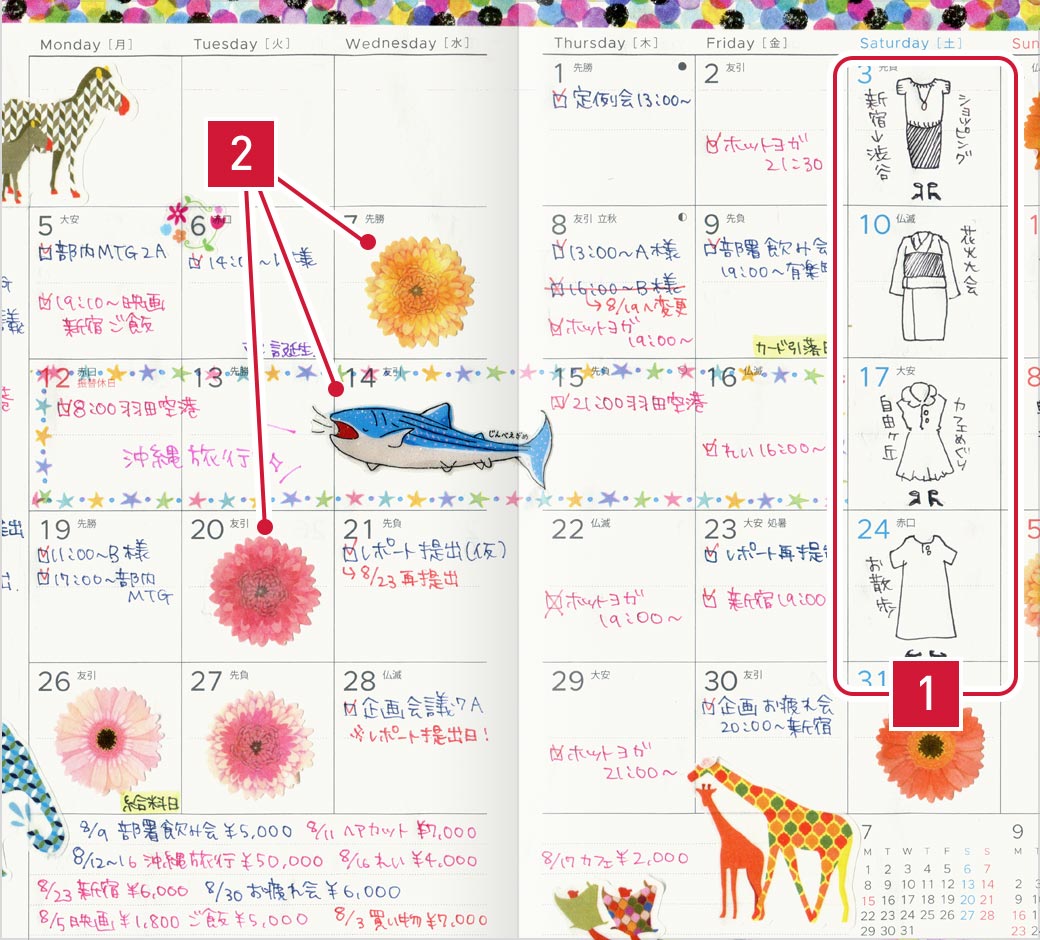 Monday [月]
Tuesday [火]
Wednesday [水]
Thursday [木]
Friday [金]
Saturday [土]
Sun
1 先勝
定例会13:00~
2 友引
ホットヨガ
21:30
3 先負
新宿→渋谷
ショッピング
2
5 大安
部内MTG 2A
19:10~映画
新宿ご飯
6 赤口
様
誕生
7 先勝
8 友引 立秋
13:00~A様
16:00~B様
→8/19へ変更
ホットヨガ
19:00~
9 先負
部署飲み会
19:00~有楽
カード引落日
10 仏滅
花火大会
12 赤口
振替休日
8:00羽田空港
沖縄旅行
13 先勝
14 友引
じんべえざめ
15 先負
21:00羽田空港
16 仏滅
れい16:00~
17 大安
自由ヶ丘
カフェめぐり
19 先勝
11:00~B様
17:00~部内
MTG
20 友引
21 先負
レポート提出(仮)
→8/23再提出
22 仏滅
ホットヨガ
19:00~
23 大安 処暑
レポート再提
新宿19:00
24 赤口
お散歩
26 友引
給料日
27 先負
28 仏滅
企画会議7A
レポート提出日!
29 大安
ホットヨガ
21:00~
30 友引
企画お疲れ会
20:00~新宿
31
1
8/9 部署飲み会¥5,000 8/11 ヘアカット ¥7,000
8/12~16 沖縄旅行¥50,000 8/16れい¥4,000
8/23新宿¥6,000 8/30お疲れ会¥6,000
8/5映画¥1,800 ご飯¥5,000 8/3買い物¥7,000
8/17カフェ¥2,000
7
M T W T F S S
1 2 3 4 5 6 7
8 9 10 11 12 13 14
15 16 17 18 19 20 21
22 23 24 25 26 27 28
29 30 31
9
M T
2 3
9 10
16 17
23 24